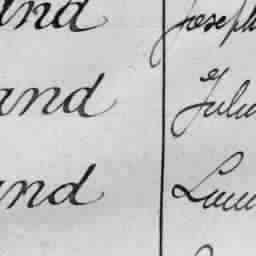 and Joseph
and Juliu
and Loui